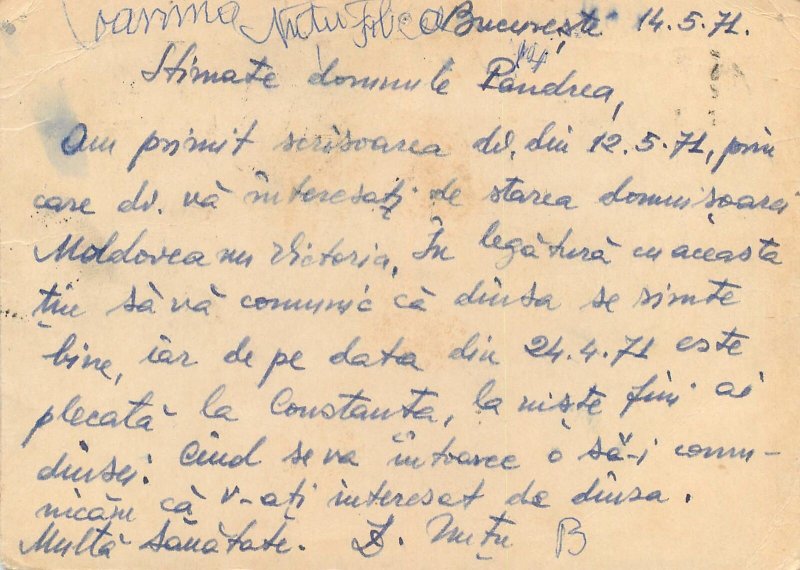 Nuțu București 14.5.71.
Stimate domnule Pandrea,
Am primit scrisoarea dv. din 12.5.71, prin
care dv. vă interesați de starea domnișoarei
Moldoveanu Victoria. În legătură cu aceasta
țin să vă comunic că dînsa se simte
bine, iar de pe data din 24.4.71 este
plecată la Constanta, la niște fini ai
dinsei. Cînd se va întoarce o să-i comu-
nicăm că v-ați interesat de dînsa.
Multă sănătate. D. Nuțu B